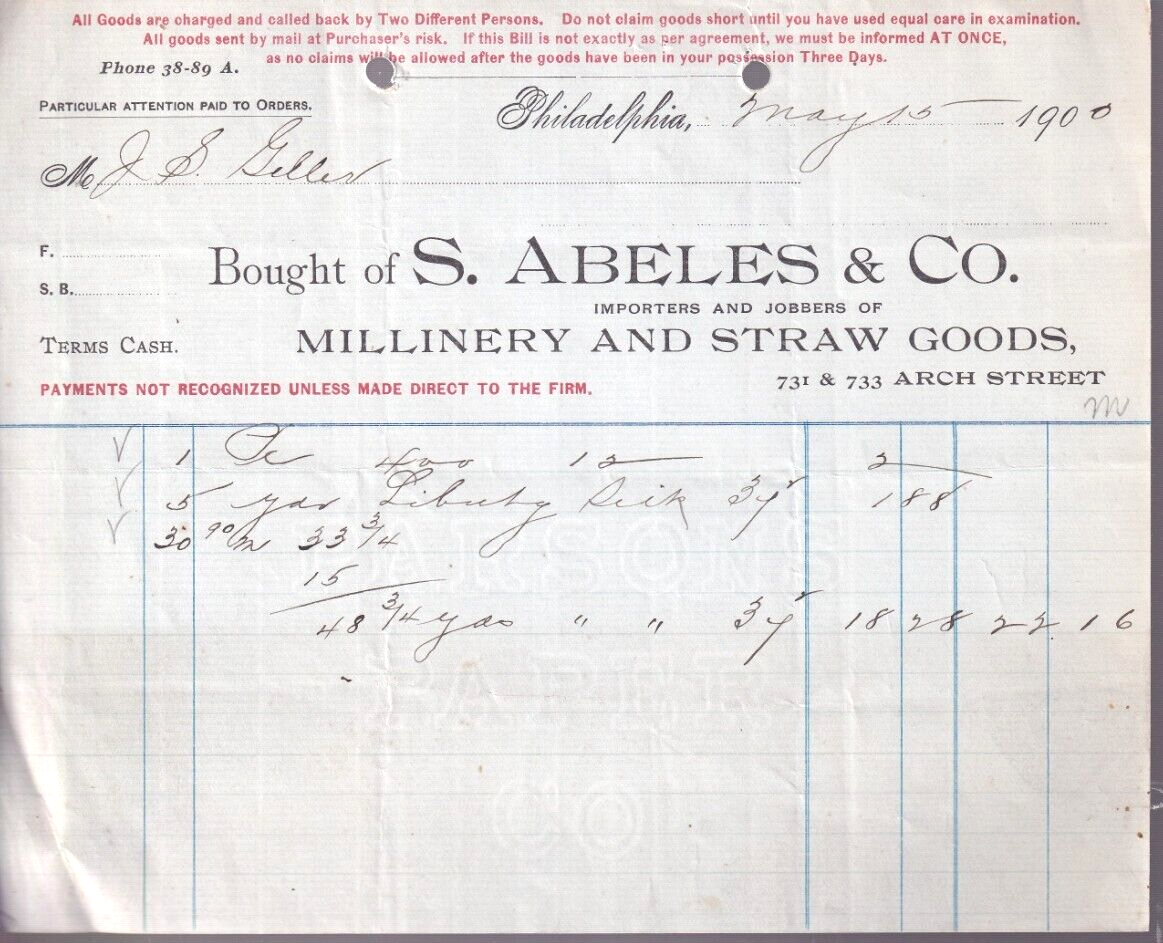 All Goods are charged and called back by Two Different Persons. Do not claim goods short until you have used equal care in examination.
All goods sent by mail at Purchaser's risk. If this Bill is not exactly as per agreement, we must be informed AT ONCE,
as no claims will be allowed after the goods have been in your possession Three Days.
Phone 38-89 A.
PARTICULAR ATTENTION PAID TO ORDERS.
Philadelphia, May 15 1900
M J S. Geller
F.
Bought of S. ABELES & CO.
S. B.
IMPORTERS AND JOBBERS OF
TERMS CASH.
MILLINERY AND STRAW GOODS,
PAYMENTS NOT RECOGNIZED UNLESS MADE DIRECT TO THE FIRM.
731 & 733 ARCH STREET
m
1 Pc 400 12 2
5 yds Liberty Silk 37½ 188
30 90/m 33 3/4
15
48 3/4 yds " " 37½ 18 28 22 16
PARSONS
PAPER
CO